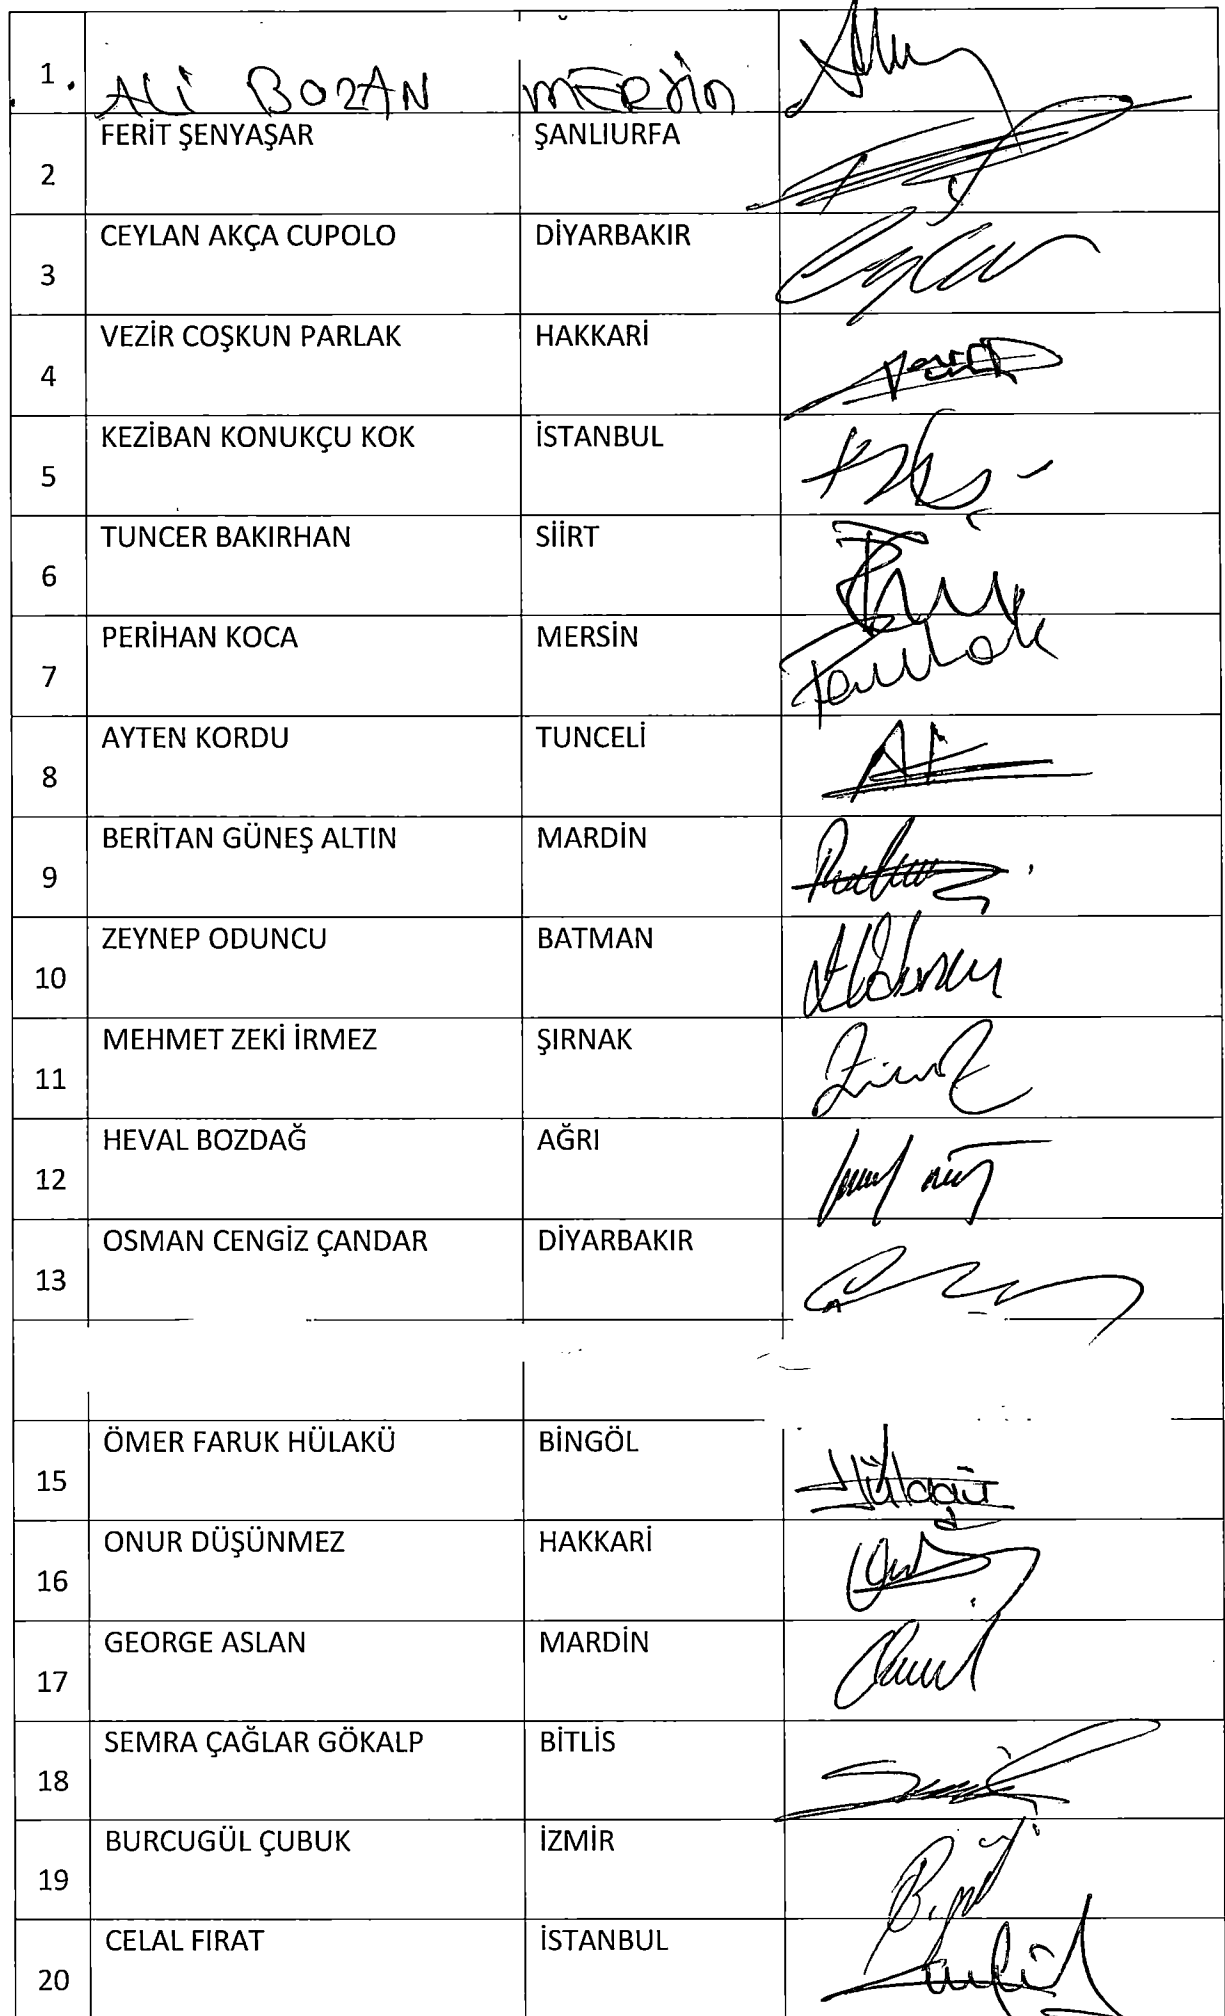 1 ALİ BOZAN MERSİN
2 FERİT ŞENYAŞAR ŞANLIURFA
3 CEYLAN AKÇA CUPOLO DİYARBAKIR
4 VEZİR COŞKUN PARLAK HAKKARİ
5 KEZİBAN KONUKÇU KOK İSTANBUL
6 TUNCER BAKIRHAN SİİRT
7 PERİHAN KOCA MERSİN
8 AYTEN KORDU TUNCELİ
9 BERİTAN GÜNEŞ ALTIN MARDİN
10 ZEYNEP ODUNCU BATMAN
11 MEHMET ZEKİ İRMEZ ŞIRNAK
12 HEVAL BOZDAĞ AĞRI
13 OSMAN CENGİZ ÇANDAR DİYARBAKIR
15 ÖMER FARUK HÜLAKÜ BİNGÖL
16 ONUR DÜŞÜNMEZ HAKKARİ
17 GEORGE ASLAN MARDİN
18 SEMRA ÇAĞLAR GÖKALP BİTLİS
19 BURCUGÜL ÇUBUK İZMİR
20 CELAL FIRAT İSTANBUL